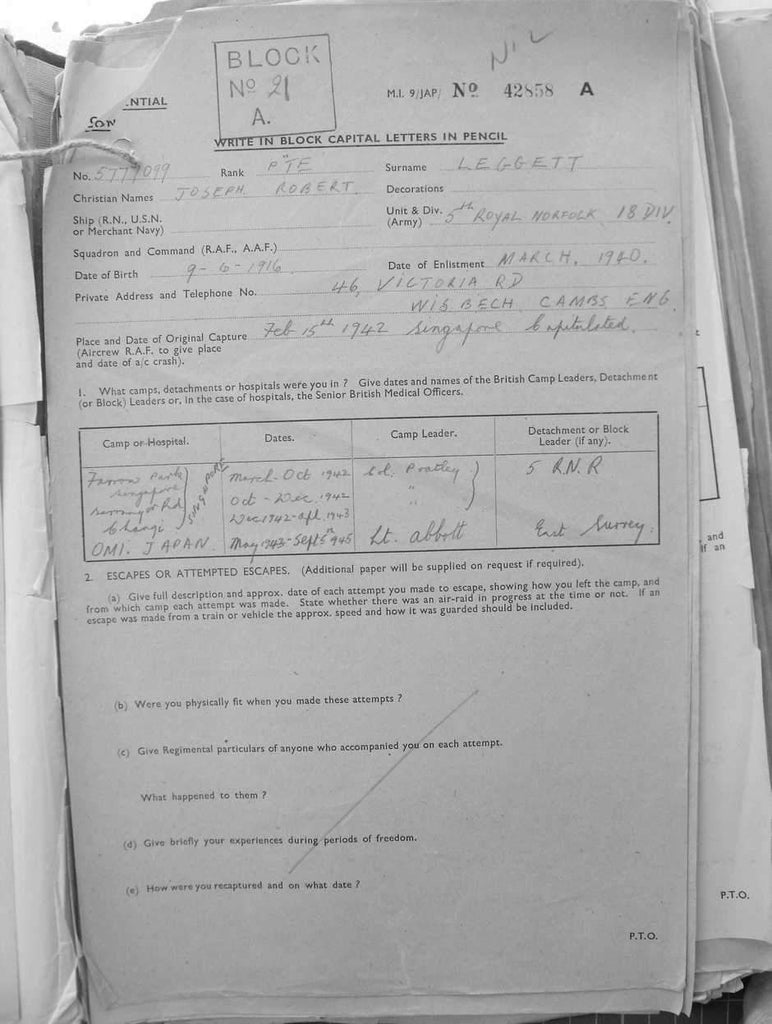 BLOCK
Nº 21
A.
NIL
NTIAL
M.I. 9/JAP/ Nº 42858 A
WRITE IN BLOCK CAPITAL LETTERS IN PENCIL
No. 5777099 Rank PTE Surname LEGGETT
Christian Names JOSEPH ROBERT Decorations
Ship (R.N., U.S.N. or Merchant Navy)
Unit & Div. (Army) 5th ROYAL NORFOLK 18 DIV.
Squadron and Command (R.A.F., A.A.F.)
Date of Birth 9-6-1916 Date of Enlistment MARCH. 1940.
Private Address and Telephone No. 46, VICTORIA RD
WISBECH CAMBS ENG
Place and Date of Original Capture Feb 15th 1942 Singapore Capitulated.
(Aircrew R.A.F. to give place
and date of a/c crash).
1. What camps, detachments or hospitals were you in ? Give dates and names of the British Camp Leaders, Detachment
(or Block) Leaders or, in the case of hospitals, the Senior British Medical Officers.
Camp or Hospital. Dates. Camp Leader. Detachment or Block
Leader (if any).
Park March-Oct 1942 Col. Pratley 5 R.N.R
Singapore
Rd Oct - Dec 1942 "
Changi SINGAPORE Dec 1942 - Apl 1943 "
OMI. JAPAN. May 1943 - Sept 5th 1945 Lt. Abbott East Surrey.
2. ESCAPES OR ATTEMPTED ESCAPES. (Additional paper will be supplied on request if required).
(a) Give full description and approx. date of each attempt you made to escape, showing how you left the camp, and
from which camp each attempt was made. State whether there was an air-raid in progress at the time or not. If an
escape was made from a train or vehicle the approx. speed and how it was guarded should be included.
(b) Were you physically fit when you made these attempts ?
(c) Give Regimental particulars of anyone who accompanied you on each attempt.
What happened to them ?
(d) Give briefly your experiences during periods of freedom.
(e) How were you recaptured and on what date ?
P.T.O.
and
If an
P.T.O.